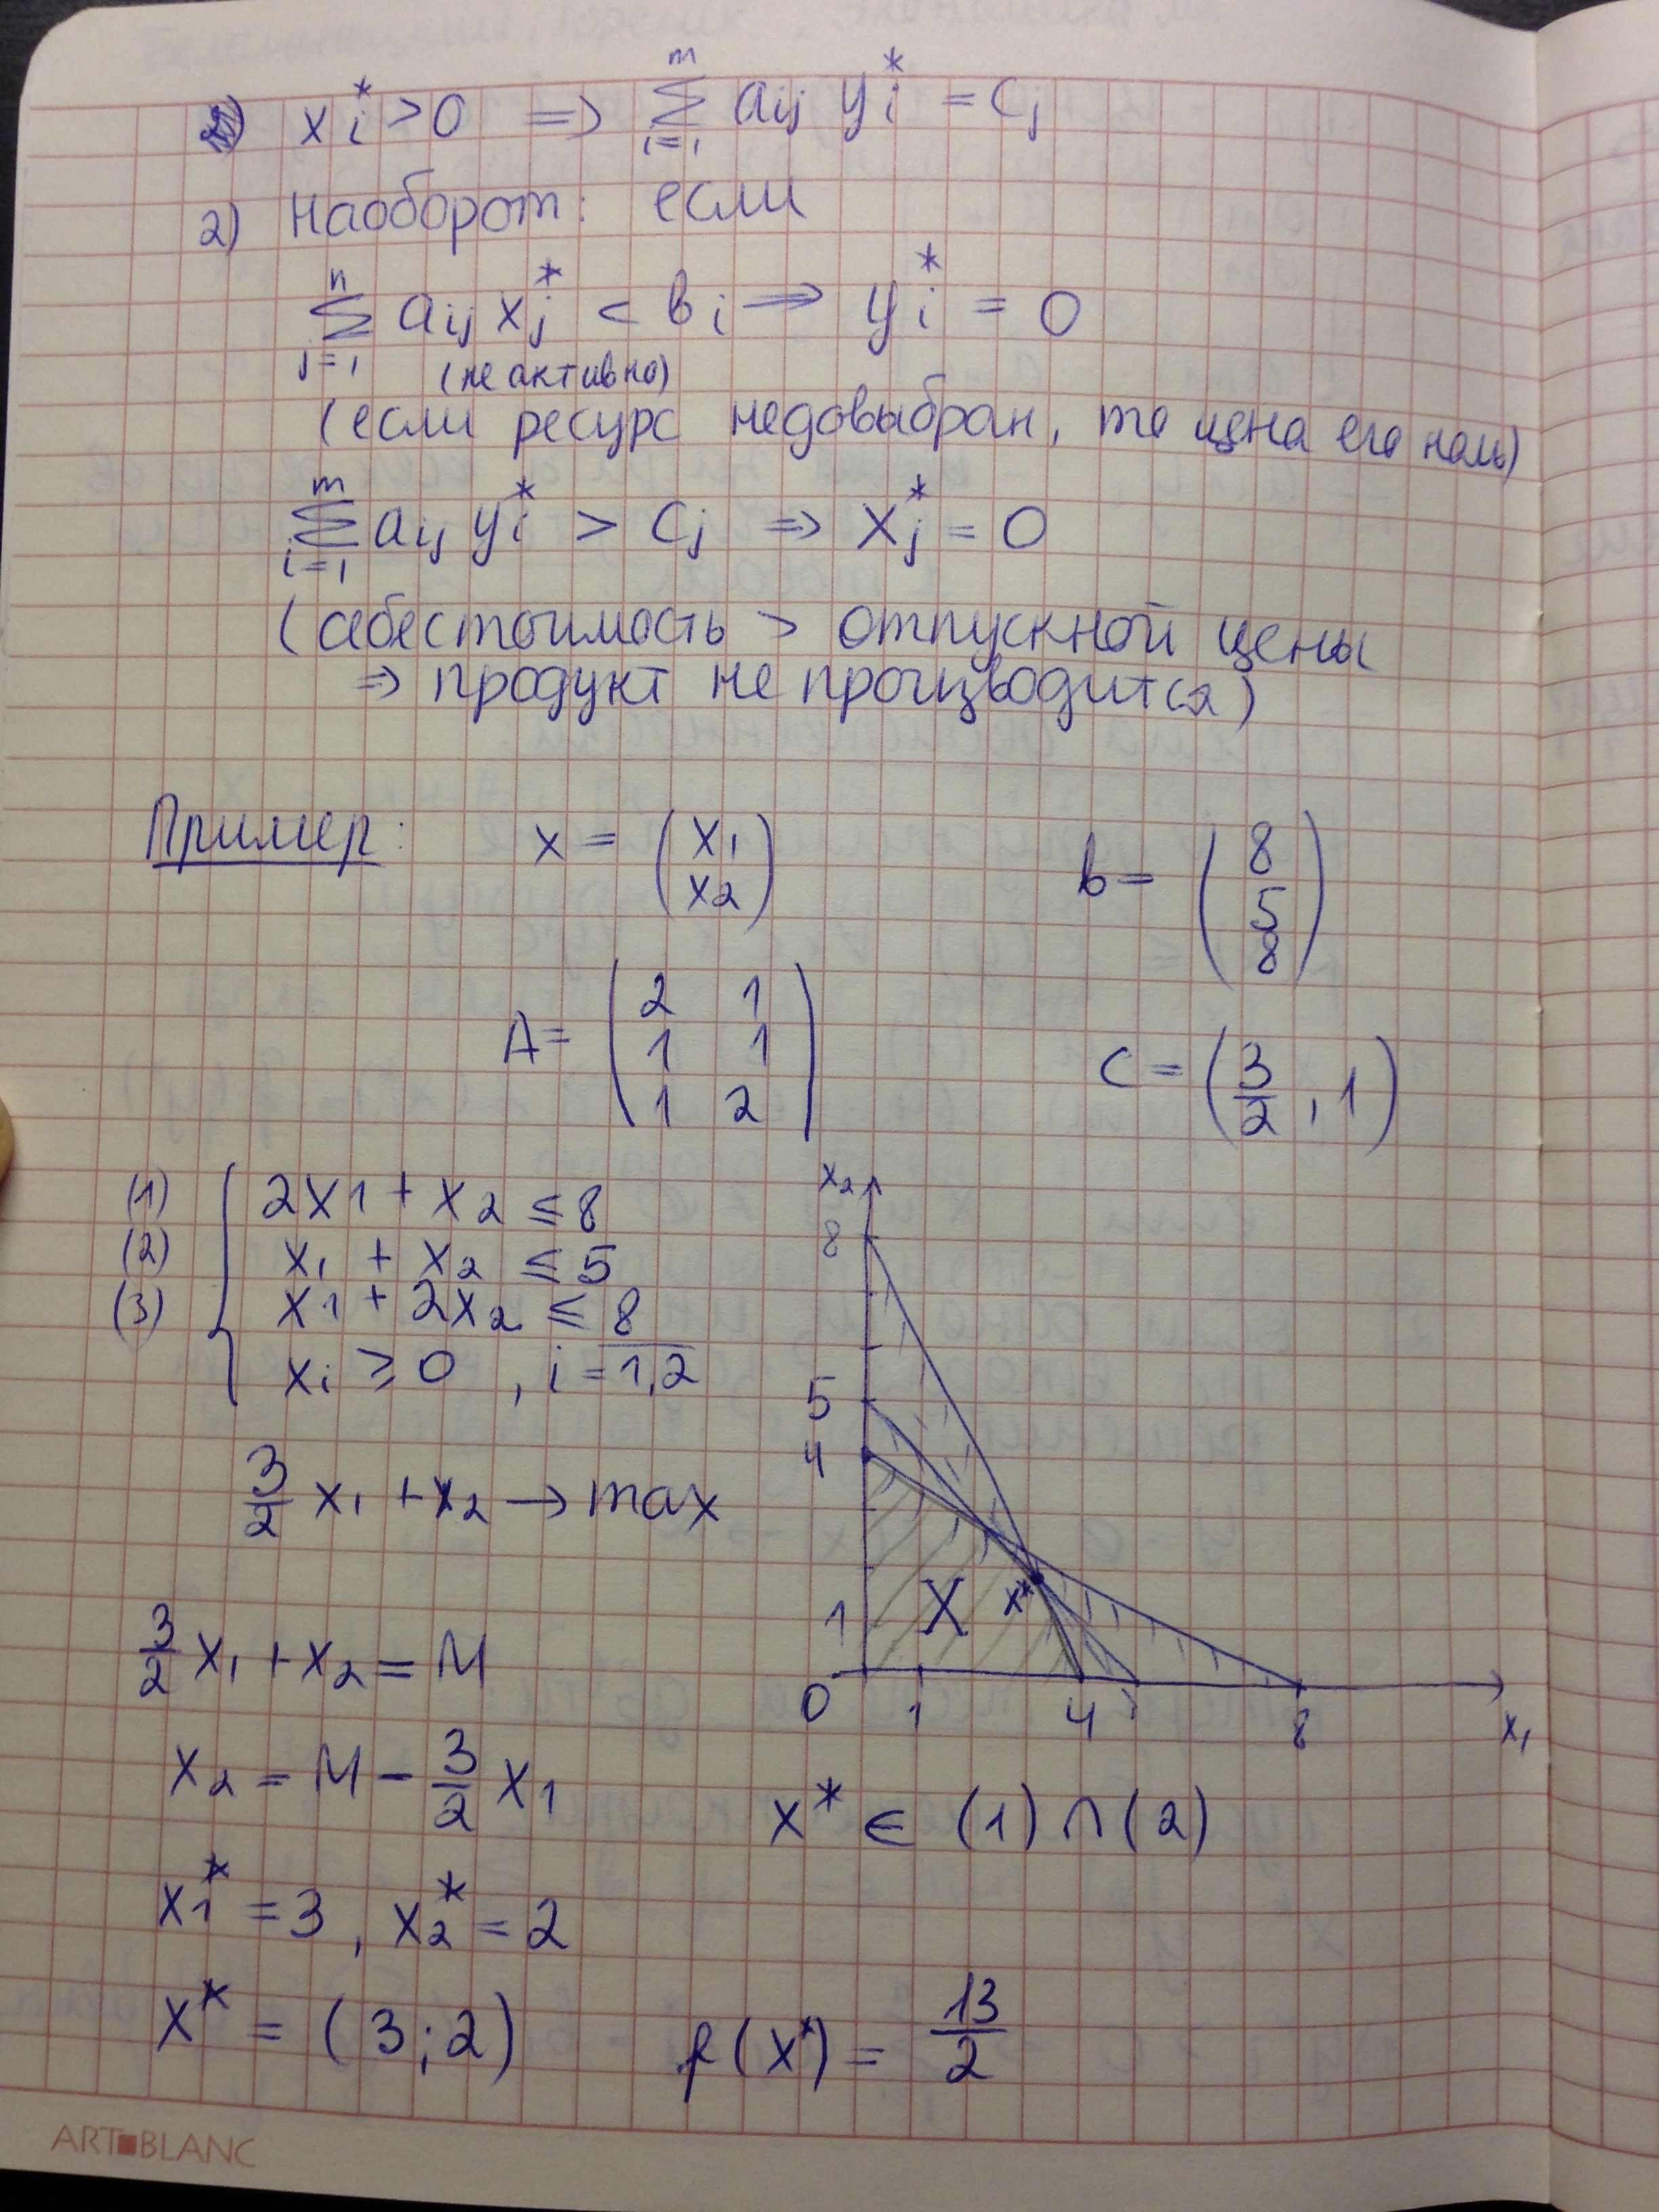 xi* > 0 ⇒ ∑_{i=1}^{m} aij yi* = cj
2) Наоборот: если
∑_{j=1}^{n} aij xj* < bi ⇒ yi* = 0
(не активно)
(если ресурс недовыбран, то цена его ноль)
∑_{i=1}^{m} aij yi* > cj ⇒ xj* = 0
(себестоимость > отпускной цены
⇒ продукт не производится)
Пример: x = (x1 x2) b = (8 5 8)
A = (2 1; 1 1; 1 2) c = (3/2, 1)
(1) 2x1 + x2 ≤ 8
(2) x1 + x2 ≤ 5
(3) x1 + 2x2 ≤ 8
xi ≥ 0, i = 1,2
3/2 x1 + x2 → max
x2
8
5
4
1
X x*
0 1 4 8 x1
3/2 x1 + x2 = M
x2 = M - 3/2 x1
x* ∈ (1) ∩ (2)
x1* = 3, x2* = 2
x* = (3; 2) f(x*) = 13/2
ART BLANC